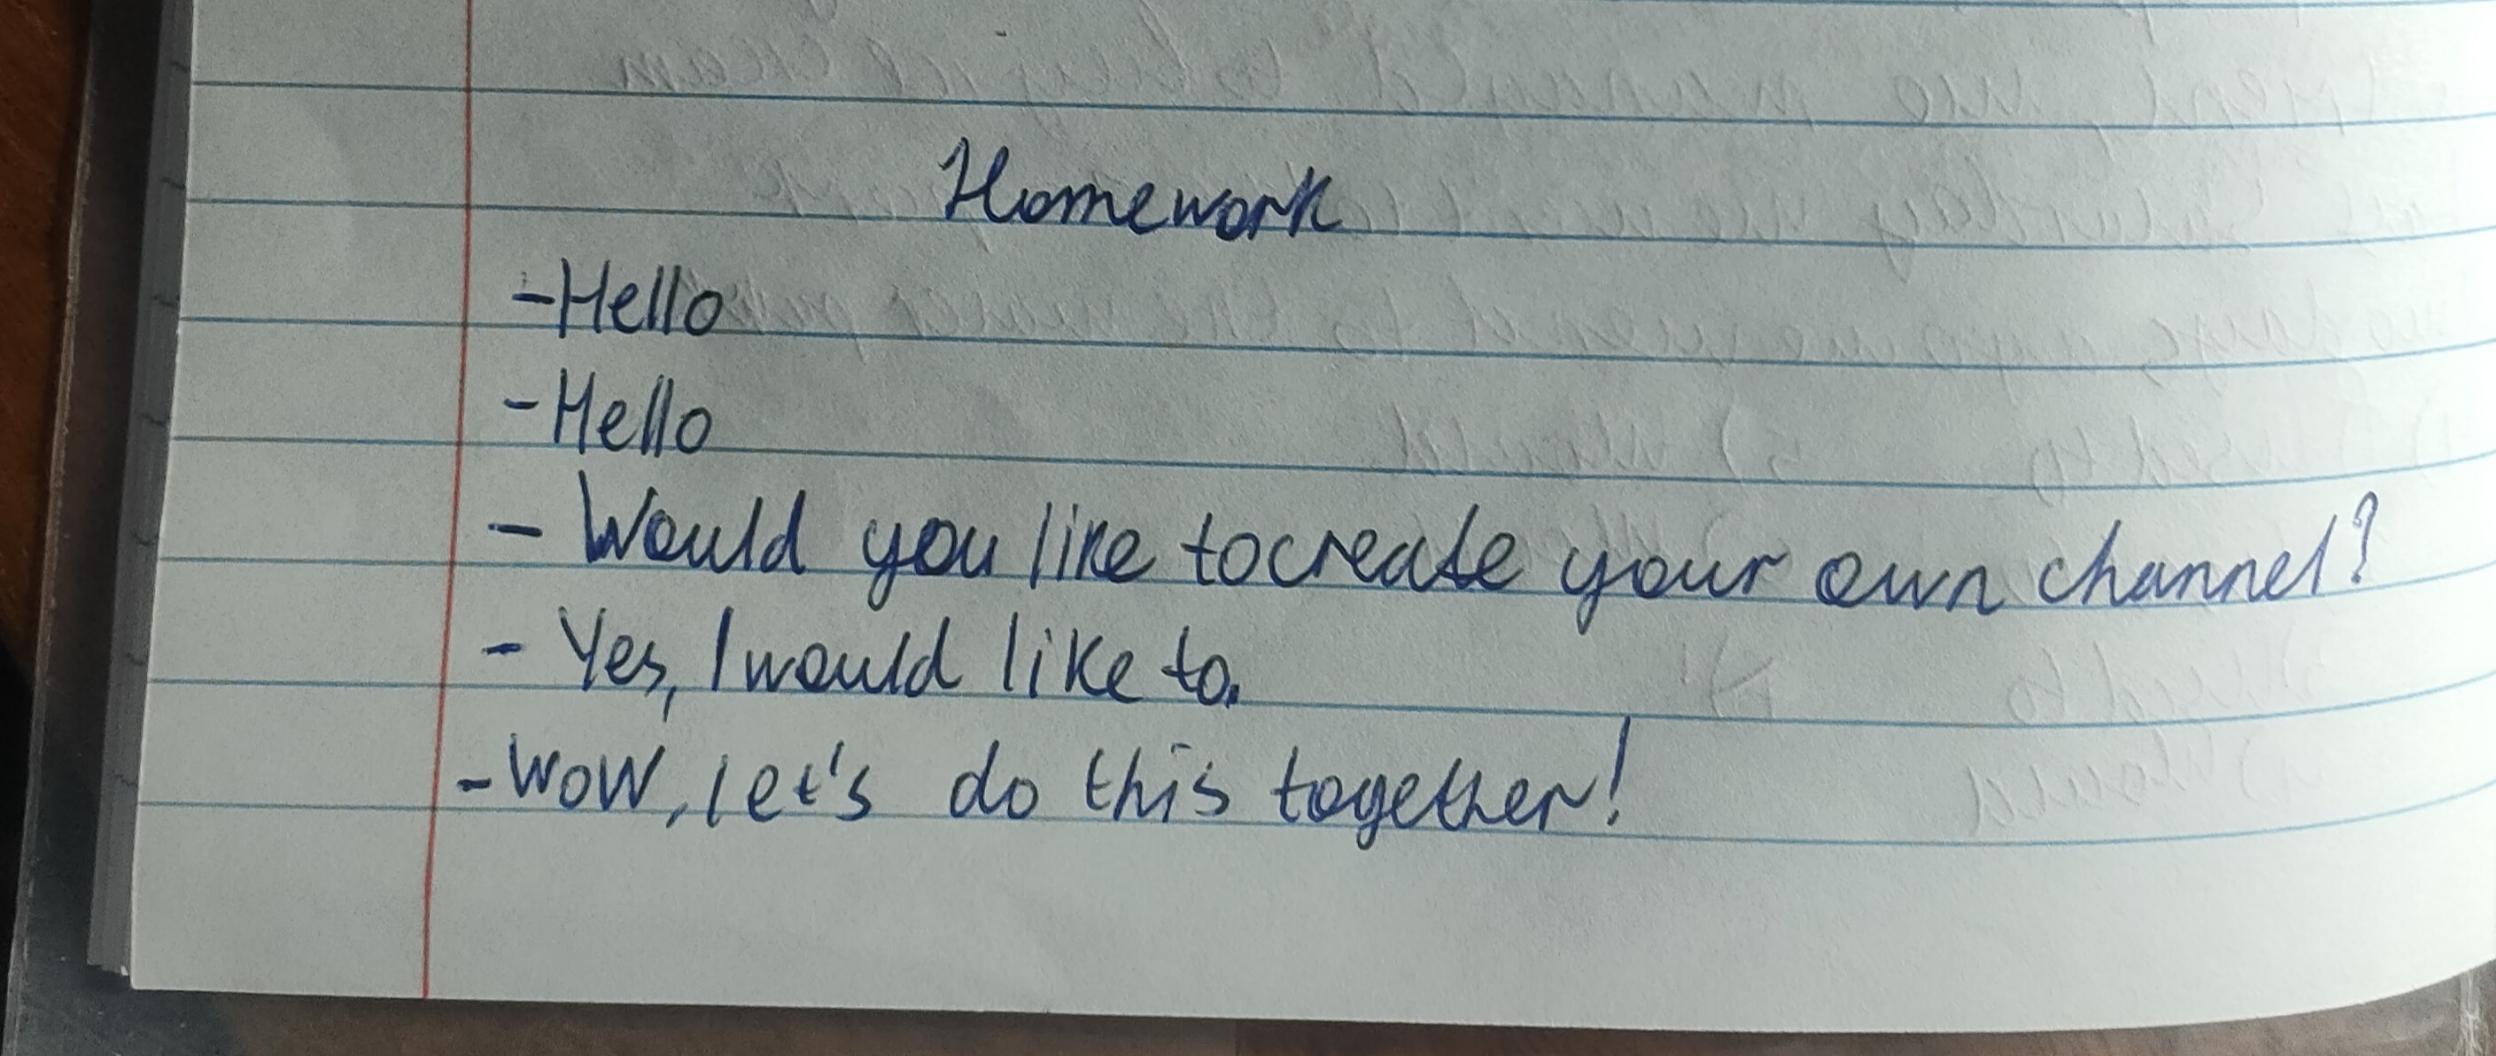 Homework
-Hello
-Hello
- Would you like to create your own channel?
- Yes, I would like to.
-Wow, let's do this together!